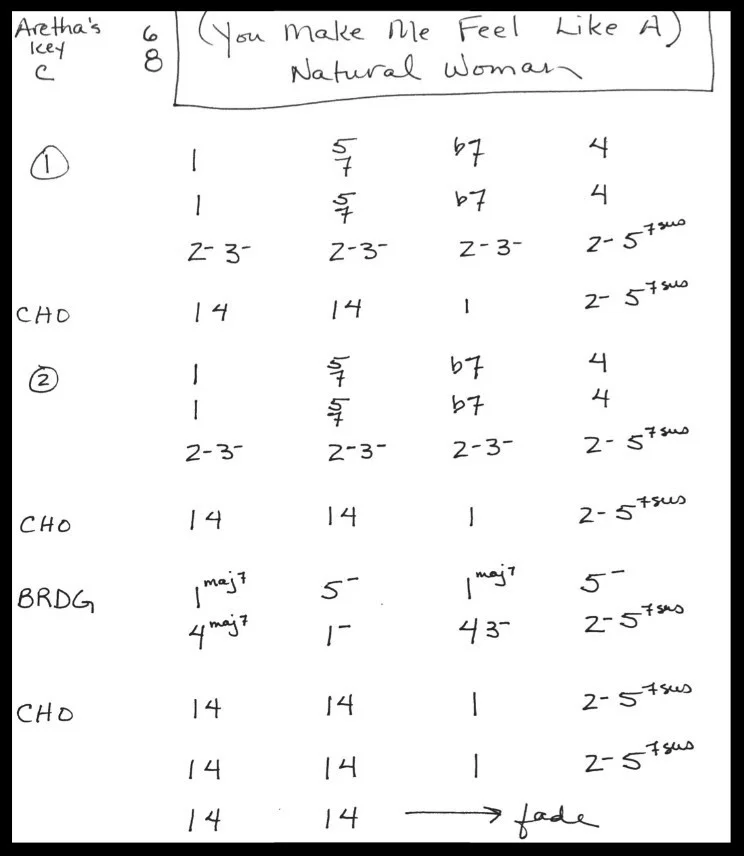 Aretha's key C 6/8 (You Make Me Feel Like A)
Natural Woman
① 1 5/7 b7 4
1 5/7 b7 4
2- 3- 2- 3- 2- 3- 2- 5⁷ˢᵘˢ
CHO 1 4 1 4 1 2- 5⁷ˢᵘˢ
② 1 5/7 b7 4
1 5/7 b7 4
2- 3- 2- 3- 2- 3- 2- 5⁷ˢᵘˢ
CHO 1 4 1 4 1 2- 5⁷ˢᵘˢ
BRDG 1ᵐᵃʲ⁷ 5- 1ᵐᵃʲ⁷ 5-
4ᵐᵃʲ⁷ 1- 4 3- 2- 5⁷ˢᵘˢ
CHO 1 4 1 4 1 2- 5⁷ˢᵘˢ
1 4 1 4 1 2- 5⁷ˢᵘˢ
1 4 1 4 → fade